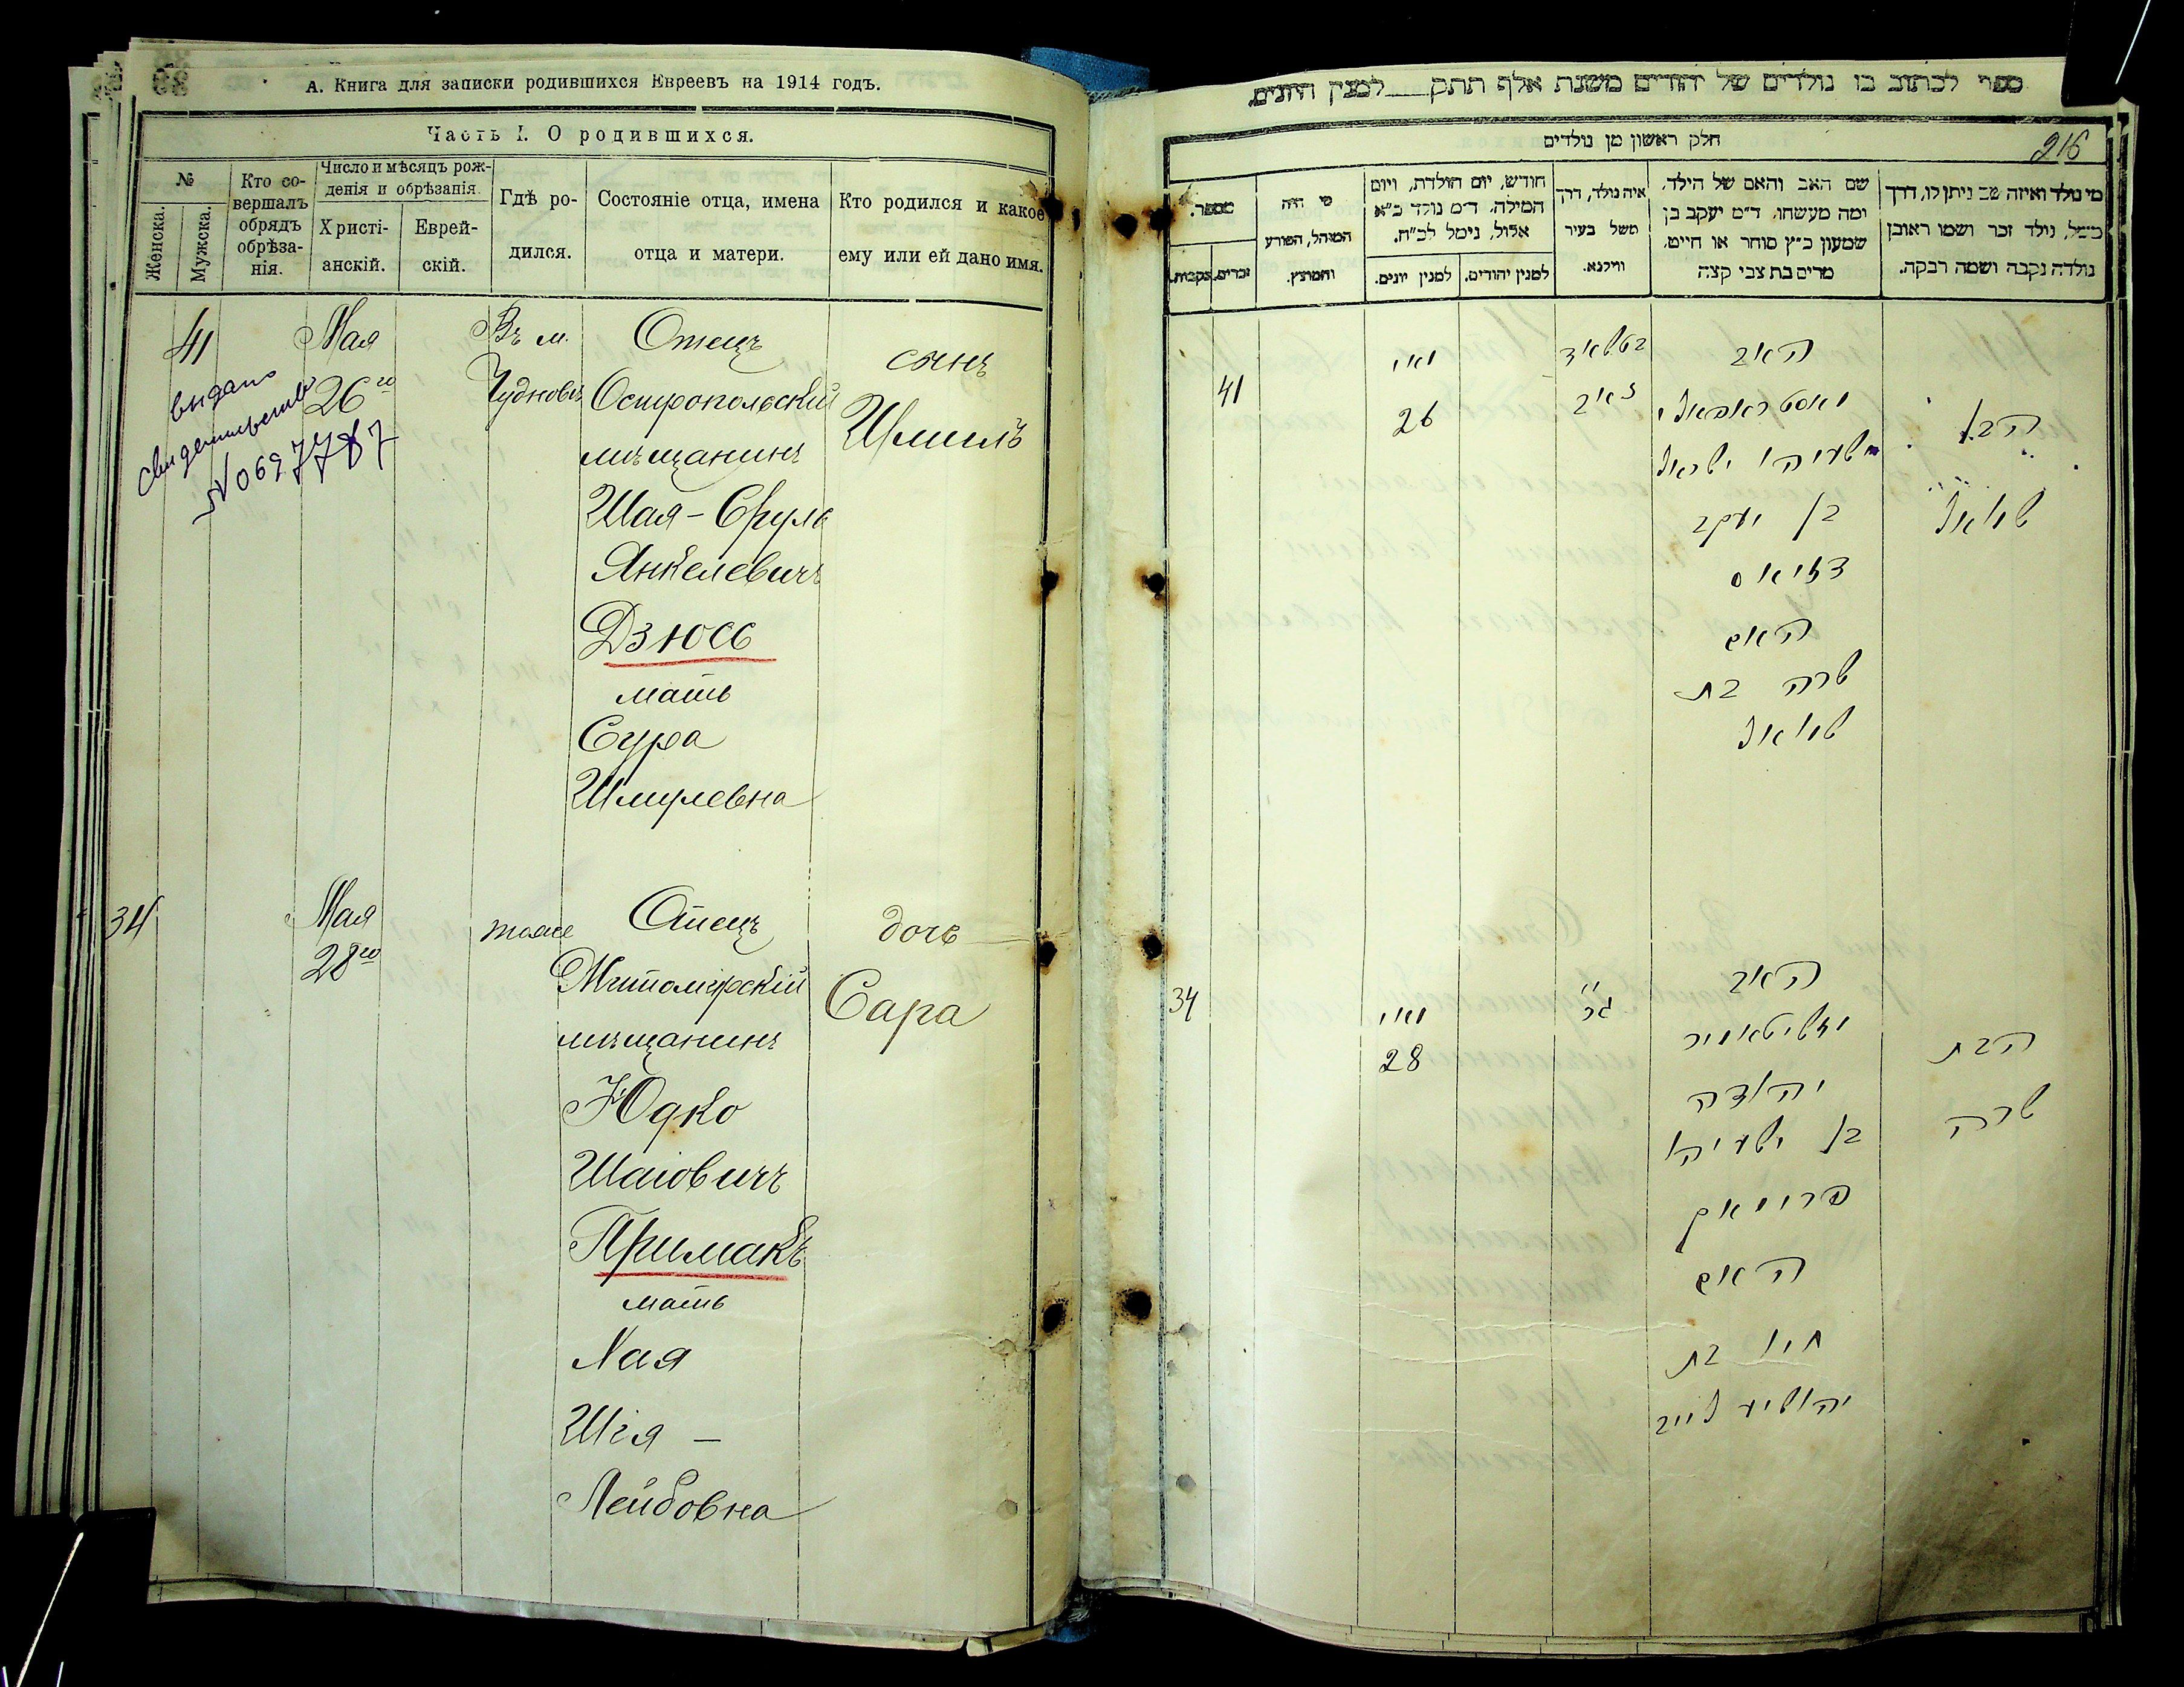 А. Книга для записки родившихся Евреевъ на 1914 годъ.
Часть I. О родившихся.
№
Женска.
Мужска.
Кто со-
вершалъ
обрядъ
обрѣза-
нія.
Число и мѣсяцъ рож-
денія и обрѣзанія.
Христі-
анскій.
Еврей-
скій.
Гдѣ ро-
дился.
Состояніе отца, имена
отца и матери.
Кто родился и какое
ему или ей дано имя.
41
выдано
свидетельство
№069 7787
Мая
26го
Въ м.
Чудновѣ
Отецъ
Остропольскій
мѣщанинъ
Шая-Сруль
Янкелевичъ
Дзюсь
мать
Сура
Шмулевна
сынъ
Шмилъ
34
Мая
28го
тоже
Отецъ
Житомірскій
мѣщанинъ
Юдко
Шаіовичъ
Примакъ
мать
Хая
Шія-
Лейбовна
дочь
Сара
ספר לכתוב בו נולדים של יהודים משנת אלף תתק למנין היונים.
216
חלק ראשון מן נולדים
מי נולד ואיזה שם ניתן לו, דרך
משל, נולד זכר ושמו ראובן
נולדה נקבה ושמה רבקה.
שם האב והאם של הילד,
ומה מעשהו, ד״מ יעקב בן
שמעון כ״ץ סוחר או חייט,
מרים בת צבי קצה
איה נולד, דרך
משל בעיר
ווילנא.
חודש, יום הולדת, ויום
המילה, ד״מ נולד כ״א
אלול, נימל לכ״ח.
למנין יהודים.
למנין יונים.
מי היה
המוהל, הפורע
והמוצץ.
מספר.
זכרים.
נקבות.
41
מאי
26
האב
ישעיהו ישראל
בן יעקב
דזיוס
האם
שרה בת
שמואל
הבן
שמואל
34
מאי
28
האב
זשיטאמיר
יהודה
בן ישעיהו
פרימאק
האם
חיה בת
יהושיע לייב
הבת
שרה